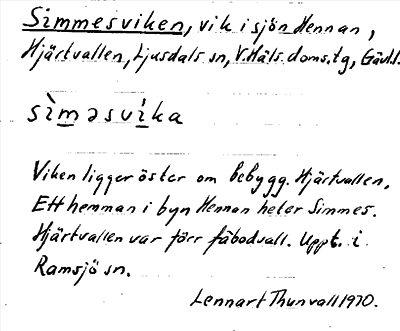 Simmesviken, vik i sjön Hennan,
Hjärtvallen, Ljusdals sn, V. Häls. doms. tg, Gävl.
sìm̲əsví̲ka
Viken ligger öster om bebygg. Hjärtvallen.
Ett hemman i byn Hennan heter Simmes.
Hjärtvallen var förr fäbodvall. Uppt. i
Ramsjö sn.
Lennart Thunvall 1970.